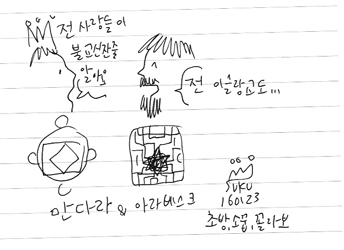 전 사람들이
불교신잔줄
알아요
전 이슬람교도...
만다라 & 아라베스크
SUKU
160123
초방,소꿉,꼴라보